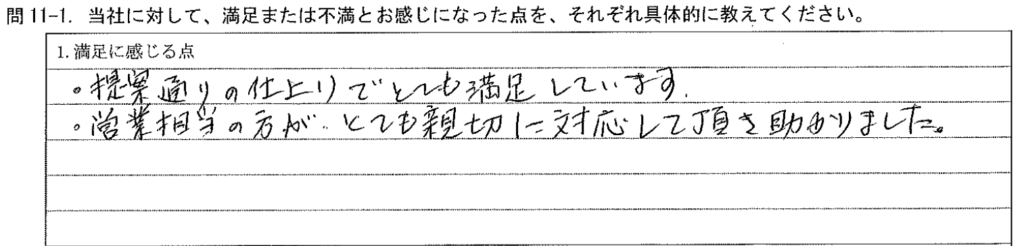 問 11-1. 当社に対して、満足または不満とお感じになった点を、それぞれ具体的に教えてください。
1. 満足に感じる点
。提案通りの仕上りでとても満足しています.
。営業担当の方が、とても親切に対応して頂き助かりました。